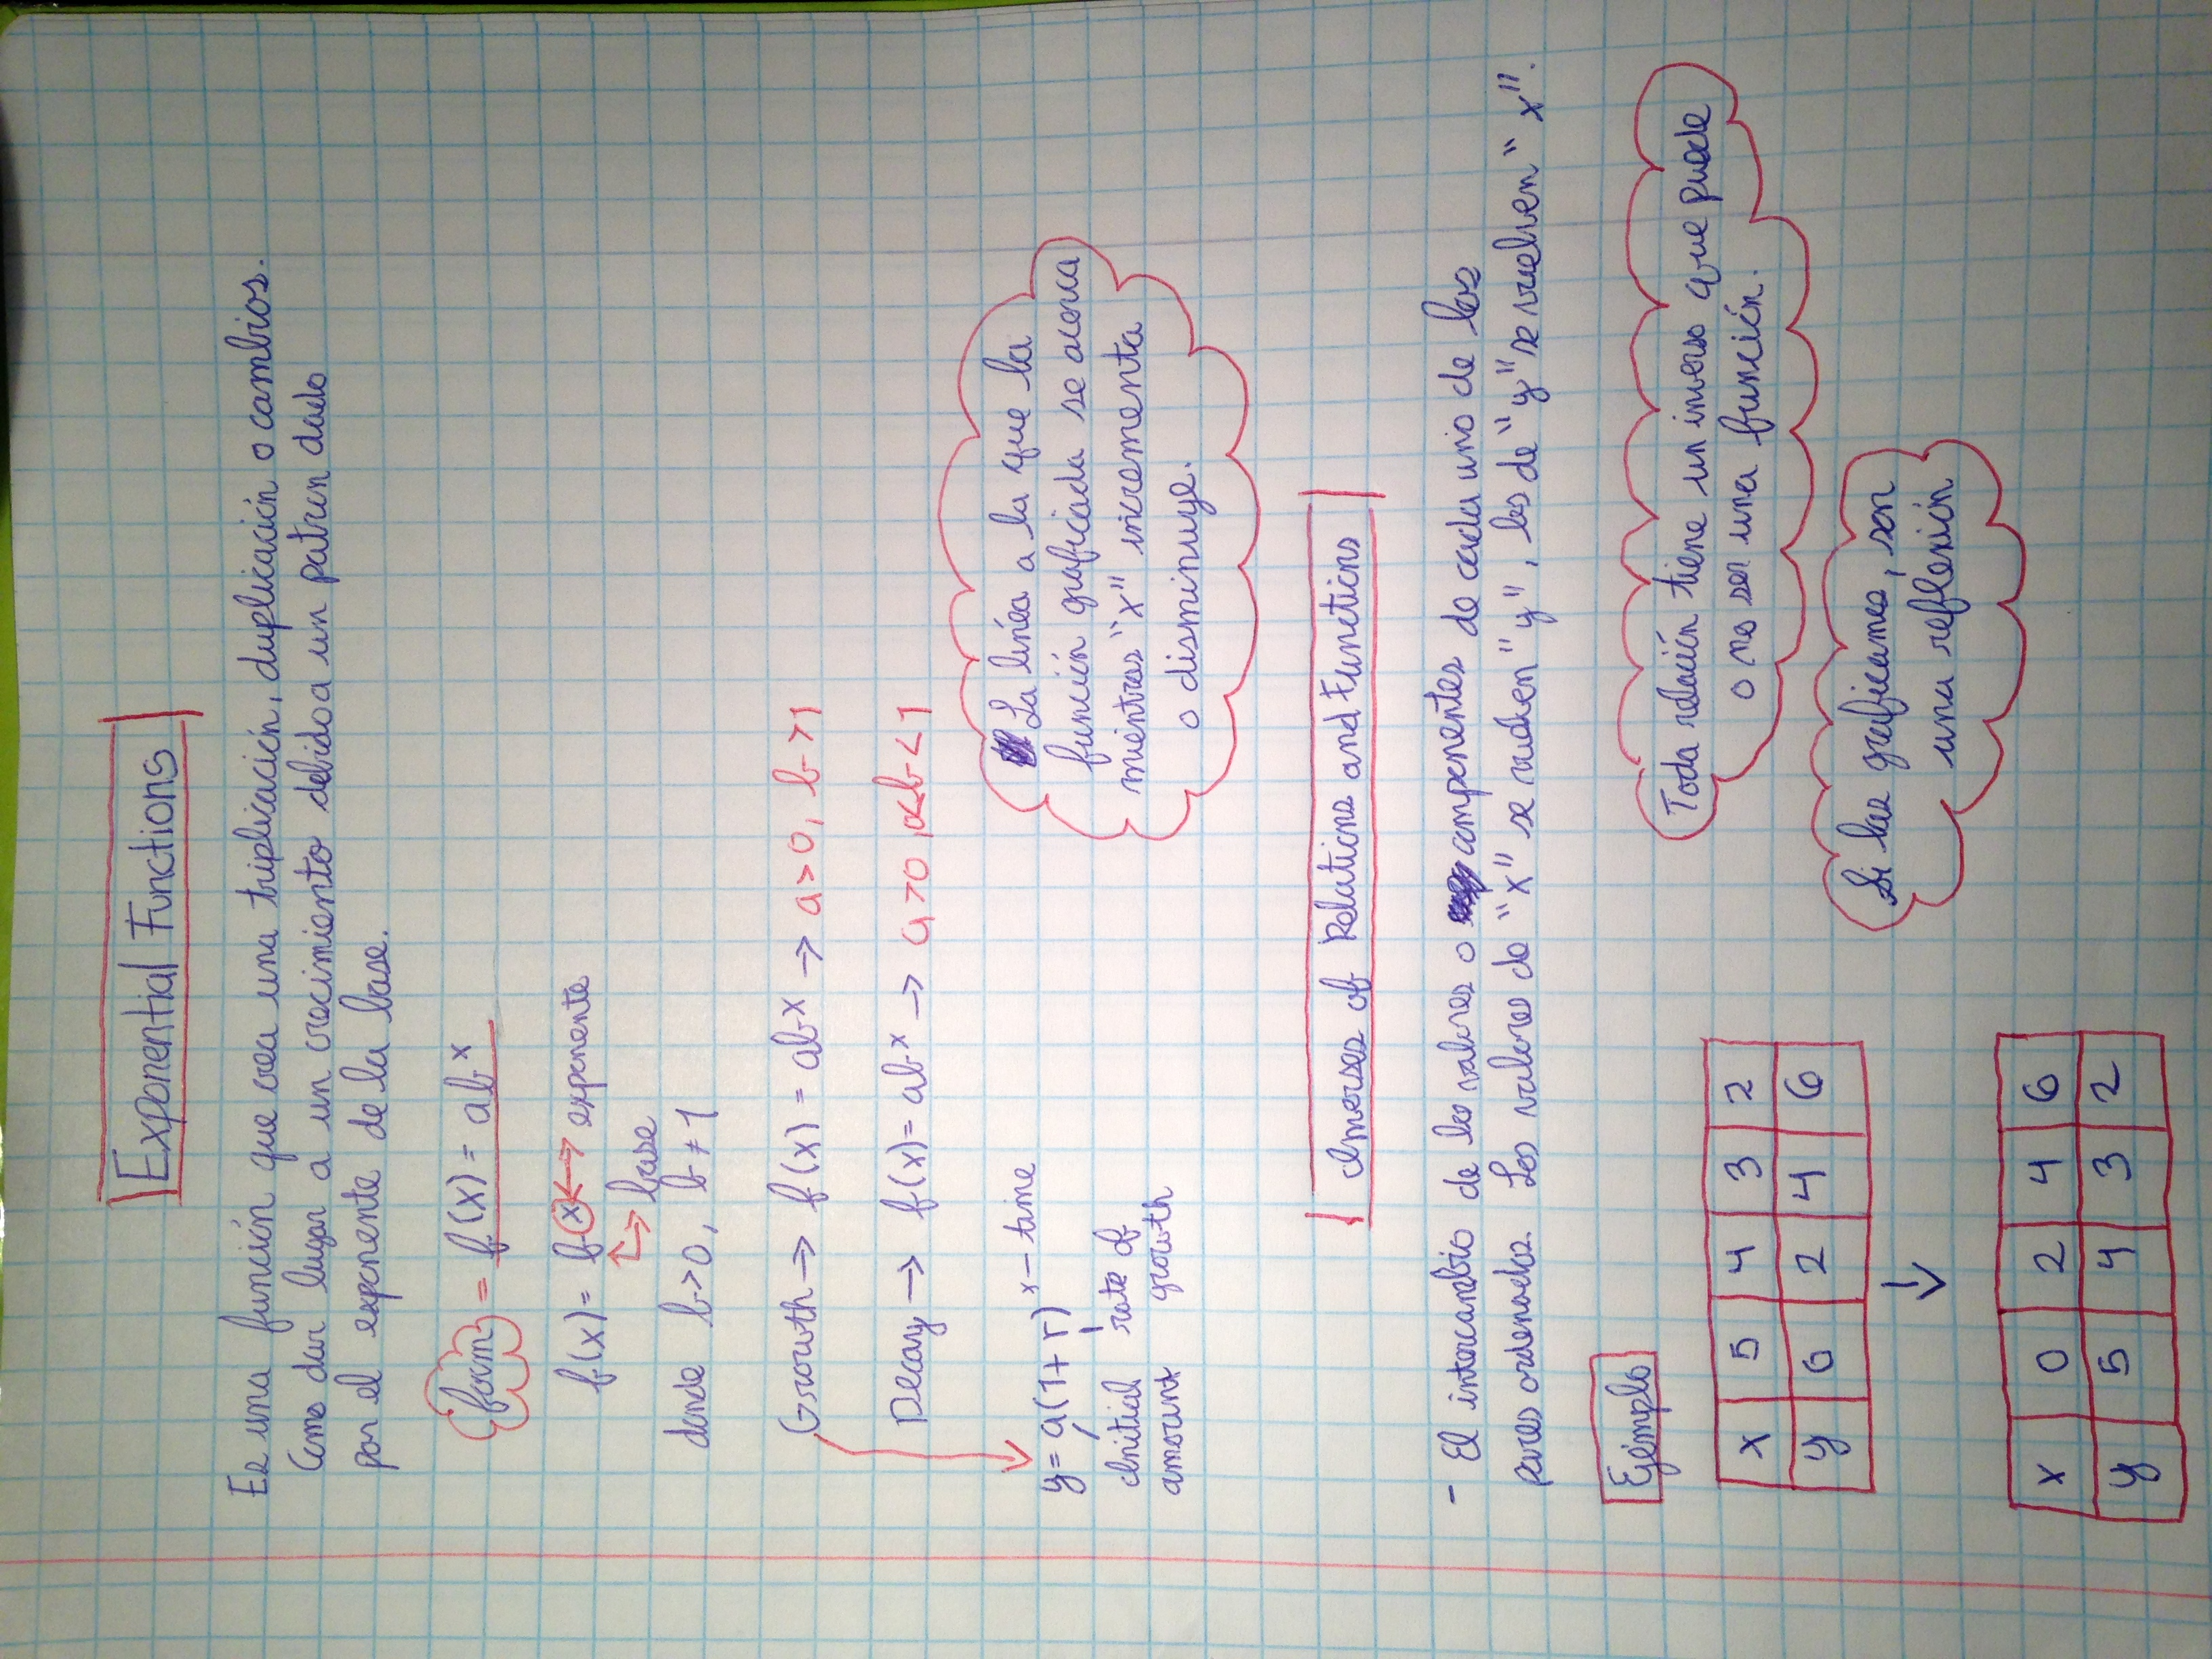 Exponential Functions
Es una función que crea una triplicación, duplicación o cambios.
Como dar lugar a un crecimiento debido a un patrón dado
por el exponente de la base.
form = f(x) = ab^x
f(x) = b^x → exponente
→ base
donde b>0, b≠1
Growth → f(x) = ab^x → a>0, b>1
Decay → f(x) = ab^x → a>0, 0<b<1
y = a(1+r)^x - time
Initial rate of
amount growth
La línea a la que la
función graficada se acerca
mientras "x" incrementa
o disminuye.
Inverses of Relations and Functions
- El intercambio de los valores o componentes de cada uno de los
pares ordenados. Los valores de "x" se vuelven "y", los de "y" se vuelven "x".
Toda relación tiene un inverso que puede
o no ser una función.
Ejemplo
x 5 4 3 2
y 0 2 4 6
↓
x 0 2 4 6
y 5 4 3 2
Si las graficamos, son
una reflexión